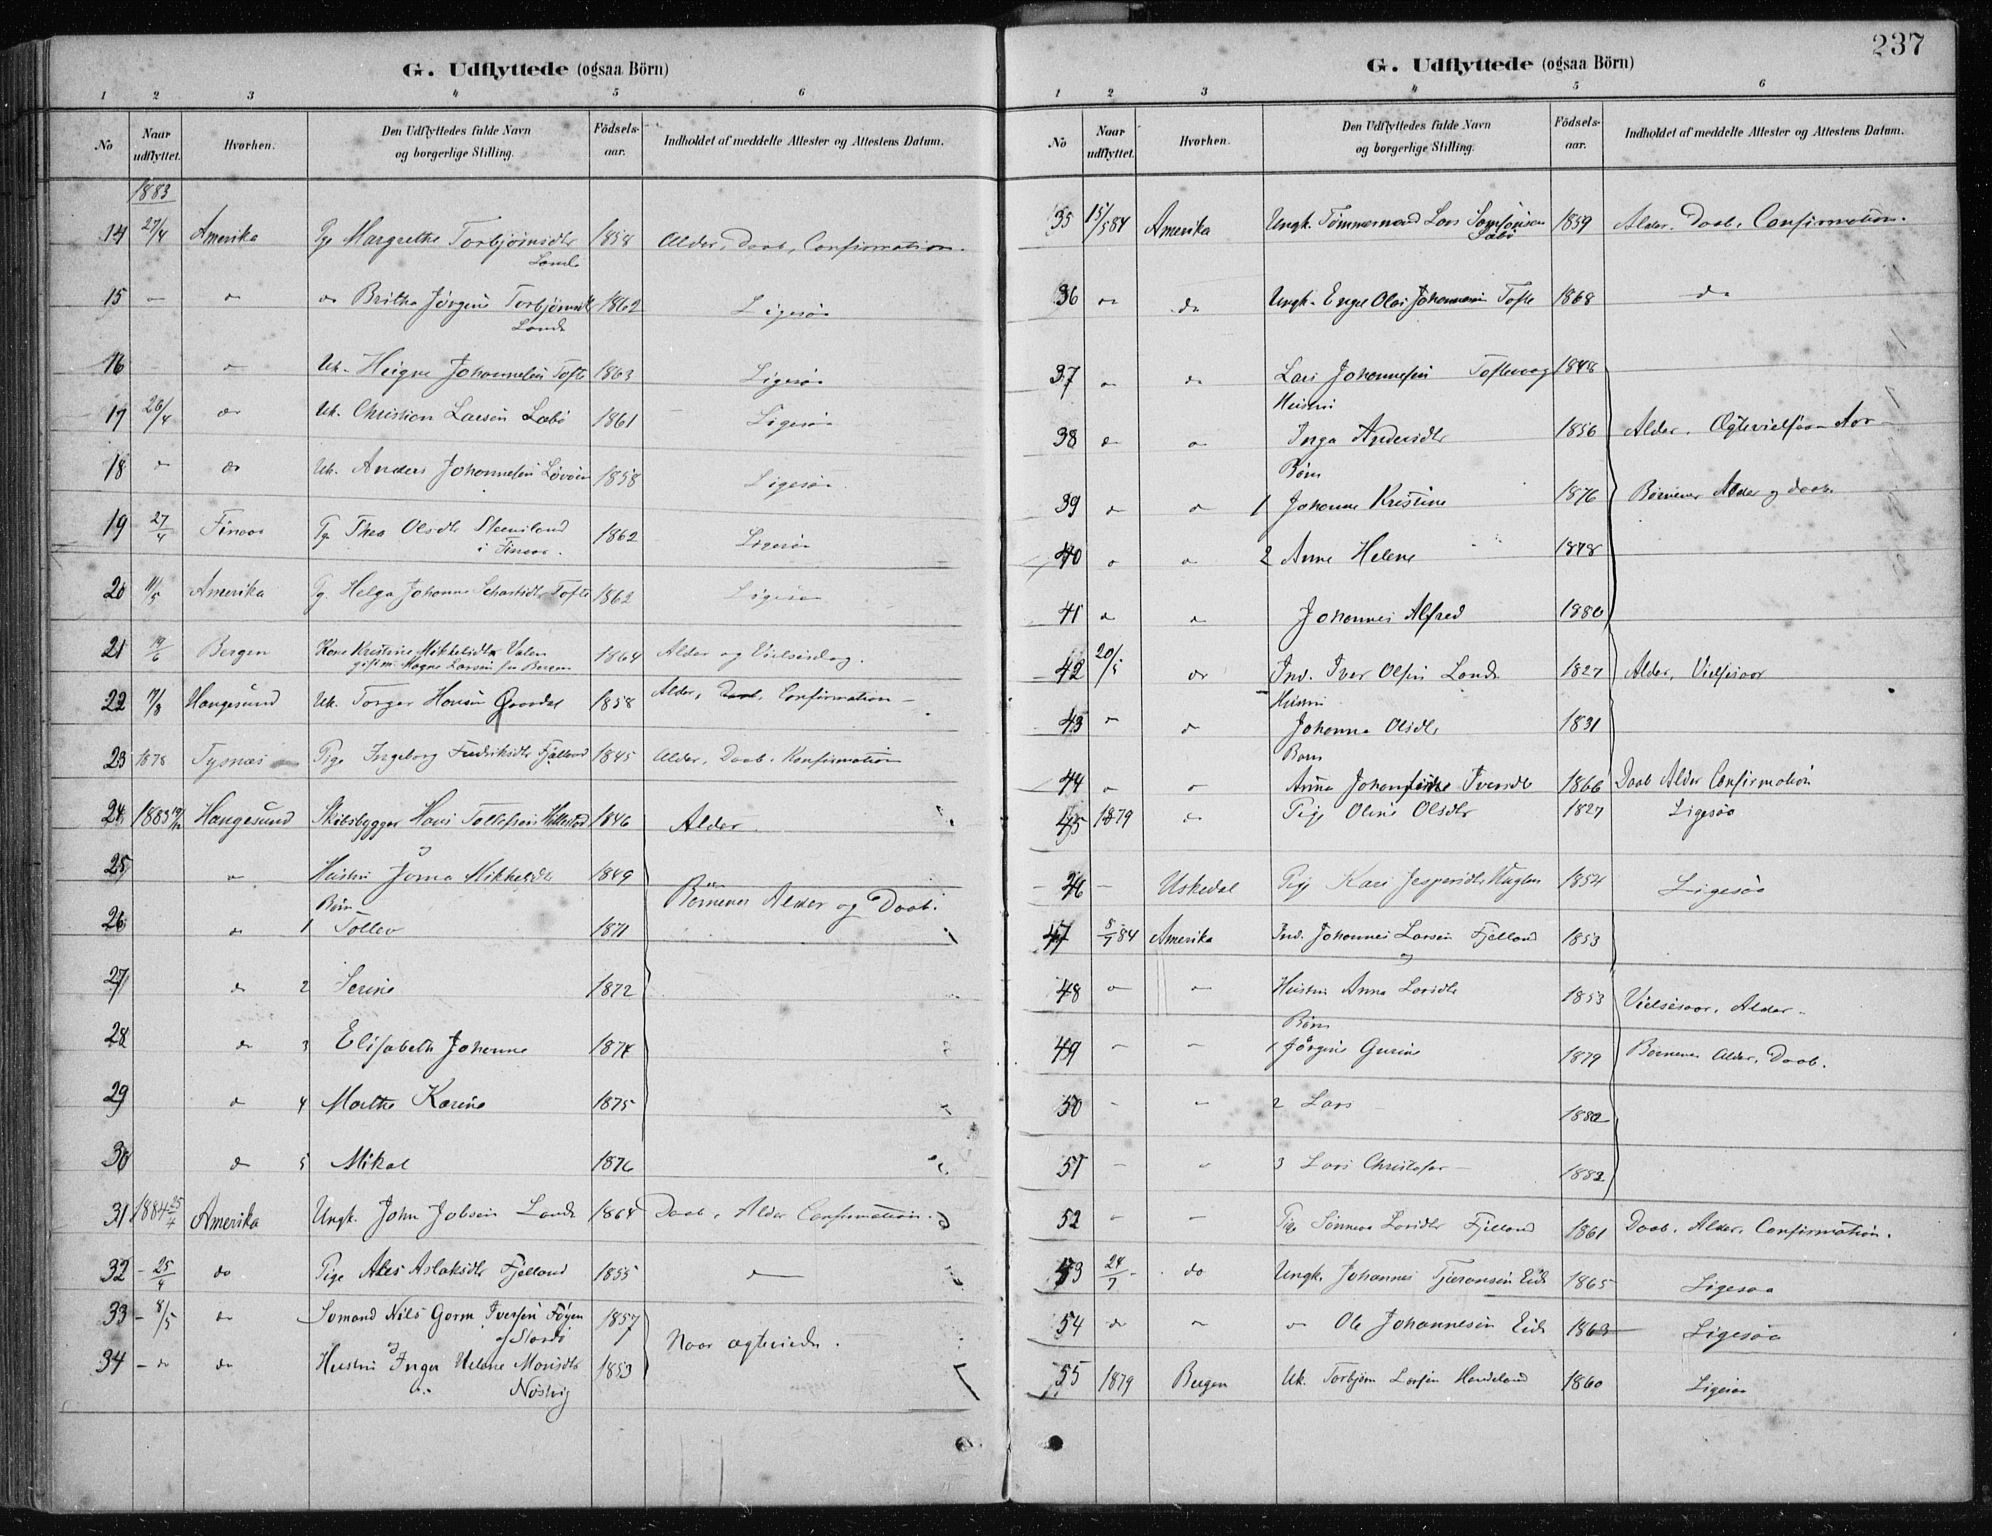 237
G. Udflyttede (ogsaa Börn)
1 2 3 4 5 6
No Naar udflyttet. Hvorhen. Den Udflyttedes fulde Navn og borgerlige Stilling. Födsels-aar. Indholdet af meddelte Attester og Attestens Datum.
1883
14 27/4 Amerika Pge Margrethe Torbjörnsdtr 1858 Alder, Daab, Confirmation.
Lande
15 - do do Britha Jörgine Torbjörnsdtr 1862 Ligesaa
Lande
16 do Uk. Johannesen Tofte 1863 Ligesaa
17 26/4 do Uk. Christian Larsen Sæbö 1861 Ligesaa
18 do do Uk. Anders Johannesen 1858 Ligesaa.
19 27/4 Finaas Pg. Thea Olsdtr 1862 Ligesaa
i Finaas.
20 11/5 Amerika Pg. Helga Johanne Tofte 1862 Ligesaa
21 19/6 Bergen Kone Kristine Mikkelsdtr Valen 1864 Alder og Vielsesdag.
gift m. Mogne Larsen fra Bergen
22 7/8 Haugesund Uk. Torger Hansen 1858 Alder, Daab, Confirmation -
23 1878 Tysnæs Pige Ingeborg Fredriksdtr Fjelland 1845 Alder, Daab, Konfirmation
24 1883 Haugesund Skibsbygger Hans Tollefsen 1846 Alder.
og
25 do Hustru Mikkelsdtr 1849
Börn Börnenes Alder og Daab.
26 do 1 Tollev 1871
27 do 2 Serine 1872
28 do 3 Elisabeth Johanne 1874
29 do 4 Marthe Karine 1875
30 do 5 Mikal 1876
31 1884 25/4 Amerika Ungk. John Jobsen Lande 1864 Daab, Alder Confirmation.
32 - 25/4 do Pige Ales Aslaksdtr Fjelland 1855 do
33 - 8/5 do Sömand Nils Gorm Iversen Föyen 1857
af Stordö Naar ægteviede.
34 - do do Hustru Inger Helene Monsdtr 1853
Nösivig
G. Udflyttede (ogsaa Börn)
1 2 3 4 5 6
No Naar udflyttet. Hvorhen. Den Udflyttedes fulde Navn og borgerlige Stilling. Födsels-aar. Indholdet af meddelte Attester og Attestens Datum.
35 15/5 84 Amerika Ungk. Tömmermand Lars Samsonsen 1859 Alder, Daab, Confirmation.
Sæbö
36 do do Ungk. Engel Olai Johannesen Tofte 1868 do
37 do do Lars Johannesen Toftevaag 1848
Hustru
38 do do Inga Andersdtr 1856 Alder,
Börn
39 do do 1 Johanne Kristine 1876 Börnenes Alder og Daab.
40 do do 2 Anne Helene 1878
41 do do Johannes Alfred 1880
42 20/5 do Ind. Iver Olsen Lande 1827 Alder, Vielsesaar
Hustru
43 do do Johanna Olsdtr 1831
Barn
44 do do Anna Iversdtr 1866 Daab Alder Confirmation
45 1879 do Pige Oline Olsdtr 1827 Ligesaa
46 - Uskedal Pige Kari Jespersdtr Huglen 1854 Ligesaa
47 8/7 84 Amerika Ind. Johannes Larsen Fjelland 1853
og
48 do do Hustru Anna Larsdtr 1853 Vielsesaar, Alder.
Börn
49 - - 1 Jörgine Gurine 1879 Börnenes Alder, Daab.
50 - - 2 Lars 1880
51 - do 3 Lars Christofer 1882
52 - - Pige Sönneva Larsdtr Fjelland 1861 Daab, Alder, Confirmation.
53 24/7 - do Ungk. Johannes Tjeransen Eide 1865 Ligesaa
54 do do do Ole Johannesen Eide 1863 Ligesaa
55 1879 Bergen Uk. Torbjörn Larsen Handeland 1860 Ligesaa